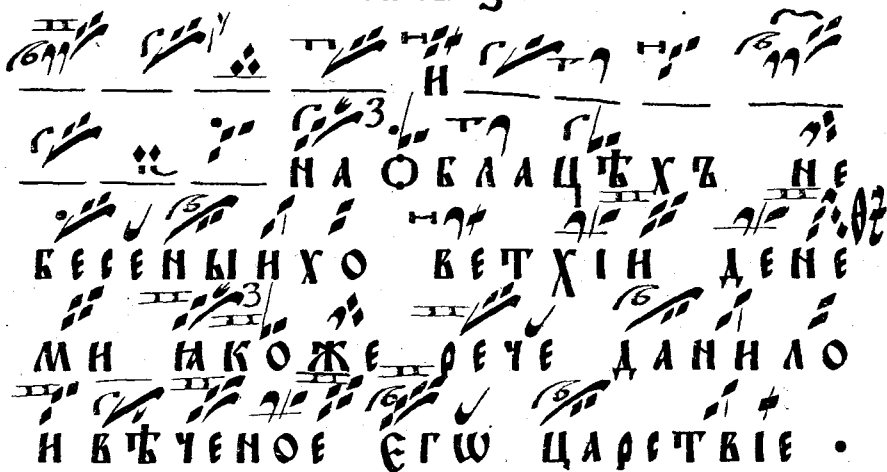 И
НА ѺБЛАЦѢХЪ НЕ
БЕСЕНЫИХО ВЕТХІИ ДЕНЕ
МИ ꙖКОЖЕ РЕЧЕ ДАНИЛО
И ВѢЧЕНОЕ ЄГѠ ЦАРСТВІЕ .